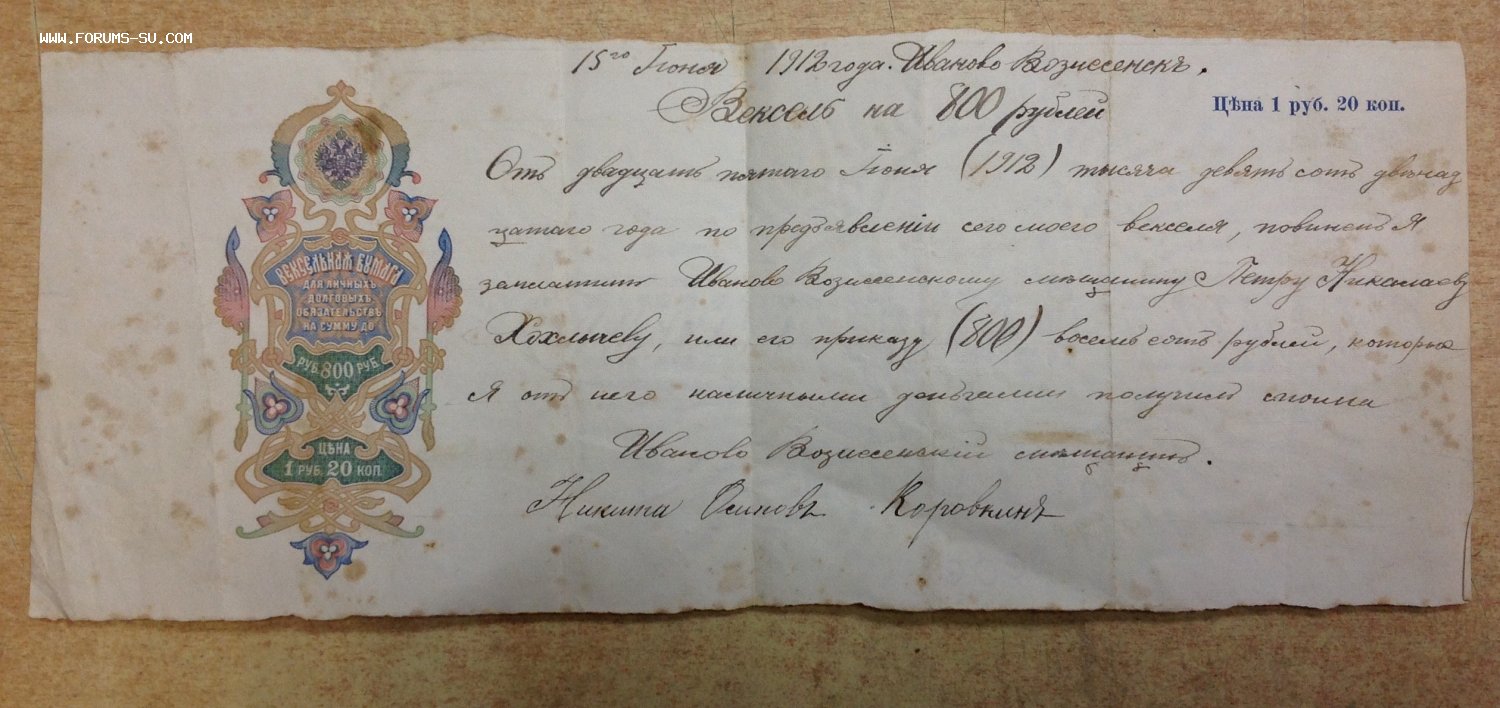 WWW.FORUMS-SU.COM
15го Іюня 1912 года. Иваново Вознесенскъ.
Вексель на 800 рублей
Цѣна 1 руб. 20 коп.
Отъ двадцать пятаго Іюня (1912) тысяча девятьсотъ двѣнад
цатаго года по предъявленіи сего моего векселя, повиненъ я
заплатить Иваново Вознесенскому мѣщанину Петру Никалаеву
Хохлычеву, или его приказу (800) восемьсотъ рублей, которые
Я отъ него наличными деньгами получилъ сполна
Иваново Вознесенский мѣщанинъ.
Никита Осиповъ Коровкинъ
ВЕКСЕЛЬНАЯ БУМАГА
ДЛЯ ЛИЧНЫХЪ
ДОЛГОВЫХЪ
ОБЯЗАТЕЛЬСТВЪ
НА СУММУ ДО
РУБ. 800 РУБ.
ЦѢНА
1 РУБ. 20 КОП.